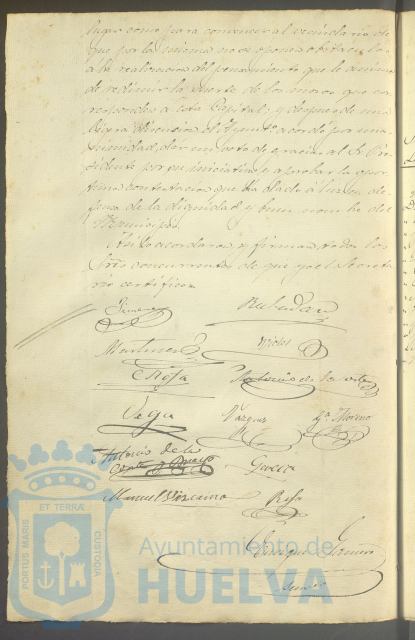 lugar como para convencer al vecindario de
que por la misma no se oponen obstaculos
a la realizacion del pensamiento que le anima
de redimir la suerte de los mozos que co-
rresponden a esta Capital; y despues de una
ligera discusion el Ayunt.º acordó por una-
nimidad, dar un voto de gracias al Sr. Pre-
sidente por su iniciativa y aprobar la opor-
tuna contestacion que ha dado á en de-
fensa de la dignidad y buen nombre del
Municipio.
Asi lo acordaron y firman todos los
Sres concurrentes de que yo el Secreta-
rio certifico.
Jimenez
Martinez
Rosa
Antonio de la Corte
Vega
Vazquez
Gª Moreno
Antonio de la
Corte y
Garcia
Manuel Vizcaino
Enrique
PORTUS MARIS
ET TERRÆ
CUSTODIA
Ayuntamiento de
HUELVA